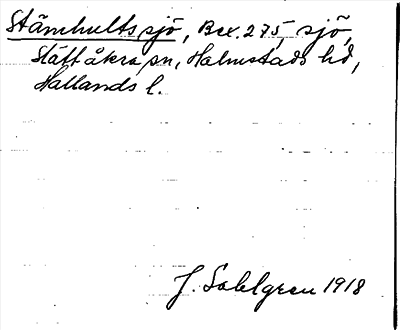 Stämhults sjö, Bex. 275, sjö,
Slättåkra sn, Halmstads hd,
Hallands l.
J. Sahlgren 1918